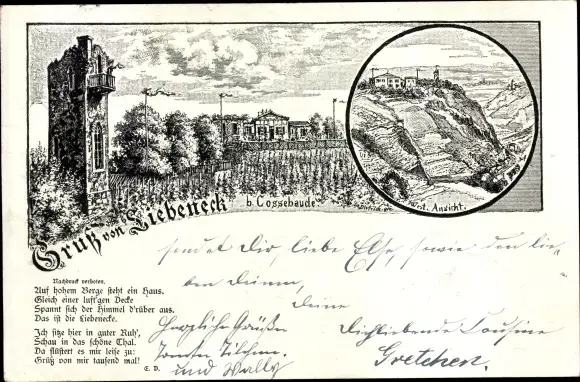 Gruß von Liebeneck
b. Cossebaude.
Ansicht.
Nachdruck verboten.
Auf hohem Berge steht ein Haus.
Gleich einer luft'gen Decke
Spannt sich der Himmel d'rüber aus.
Das ist die Liebenecke.
Ich sitze hier in guter Ruh',
Schau in das schöne Thal.
Da flüstert es mir leise zu:
Grüß von mir tausend mal!
E. D.
sendet Dir, liebe Else, sowie den lie-
ben Deinen,
Deine
Dichliebende Cousine
Gretchen.
Herzliche Grüße
und Wally